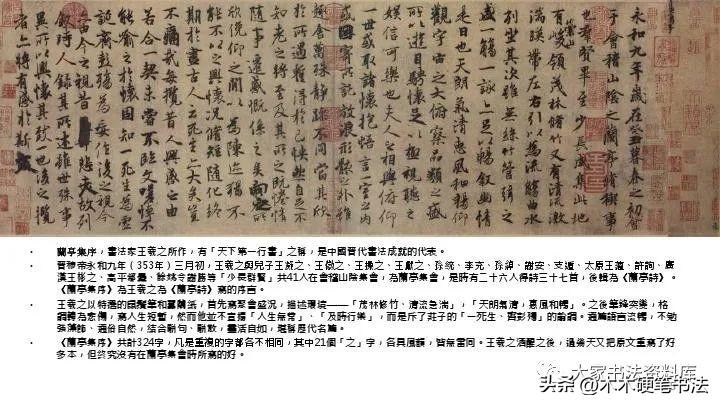 永和九年歲在癸丑暮春之初會
于會稽山陰之蘭亭脩稧事
也羣賢畢至少長咸集此地
有崇山峻領茂林脩竹又有清流激
湍暎帶左右引以為流觴曲水
列坐其次雖無絲竹管弦之
盛一觴一詠亦足以暢敘幽情
是日也天朗氣清惠風和暢仰
觀宇宙之大俯察品類之盛
所以遊目騁懷足以極視聽之
娛信可樂也夫人之相與俯仰
一世或取諸懷抱悟言一室之內
或因寄所託放浪形骸之外雖
趣舍萬殊靜躁不同當其欣
於所遇蹔得於己怏然自足不
知老之將至及其所之既惓情
隨事遷感慨係之矣向之所
欣俛仰之閒以為陳迹猶不
能不以之興懷況脩短隨化終
期於盡古人云死生亦大矣豈
不痛哉每攬昔人興感之由
若合一契未嘗不臨文嗟悼不
能喻之於懷固知一死生為虛
誕齊彭殤為妄作後之視今
亦由今之視昔悲夫故列
敘時人錄其所述雖世殊事
異所以興懷其致一也後之攬
者亦將有感於斯文
• 蘭亭集序，書法家王羲之所作，有「天下第一行書」之稱，是中國晉代書法成就的代表。
• 晉穆帝永和九年（353年）三月初，王羲之與兒子王凝之、王徽之、王操之、王獻之、孫統、李充、孫綽、謝安、支遁、太原王蘊、許詢、廣
漢王彬之、高平郗曇、餘姚令謝勝等「少長群賢」共41人在會稽山陰集會，為蘭亭集會，是時有二十六人得詩三十七首，後輯為《蘭亭詩》。
《蘭亭集序》為王羲之為《蘭亭詩》寫的序言。
• 王羲之以特選的鼠鬚筆和蠶繭紙，首先寫聚會盛況，描述環境——「茂林修竹、清流急湍」，「天朗氣清，惠風和暢」。之後筆鋒突變，格
調轉為悲傷，寫人生短暫，然而他並不宣揚「人生無常」、「及時行樂」，而是斥了莊子的「一死生、齊彭殤」的論調。通篇語言流暢，不勉
強藻飾、通俗自然，結合駢句、駢散，靈活自如，堪稱歷代名篇。
• 《蘭亭集序》共計324字，凡是重複的字都各不相同，其中21個「之」字，各具風韻，皆無雷同。王羲之酒醒之後，過幾天又把原文重寫了好
多本，但終究沒有在蘭亭集會時所寫的好。
大家书法资料库
头条 @木木硬笔书法